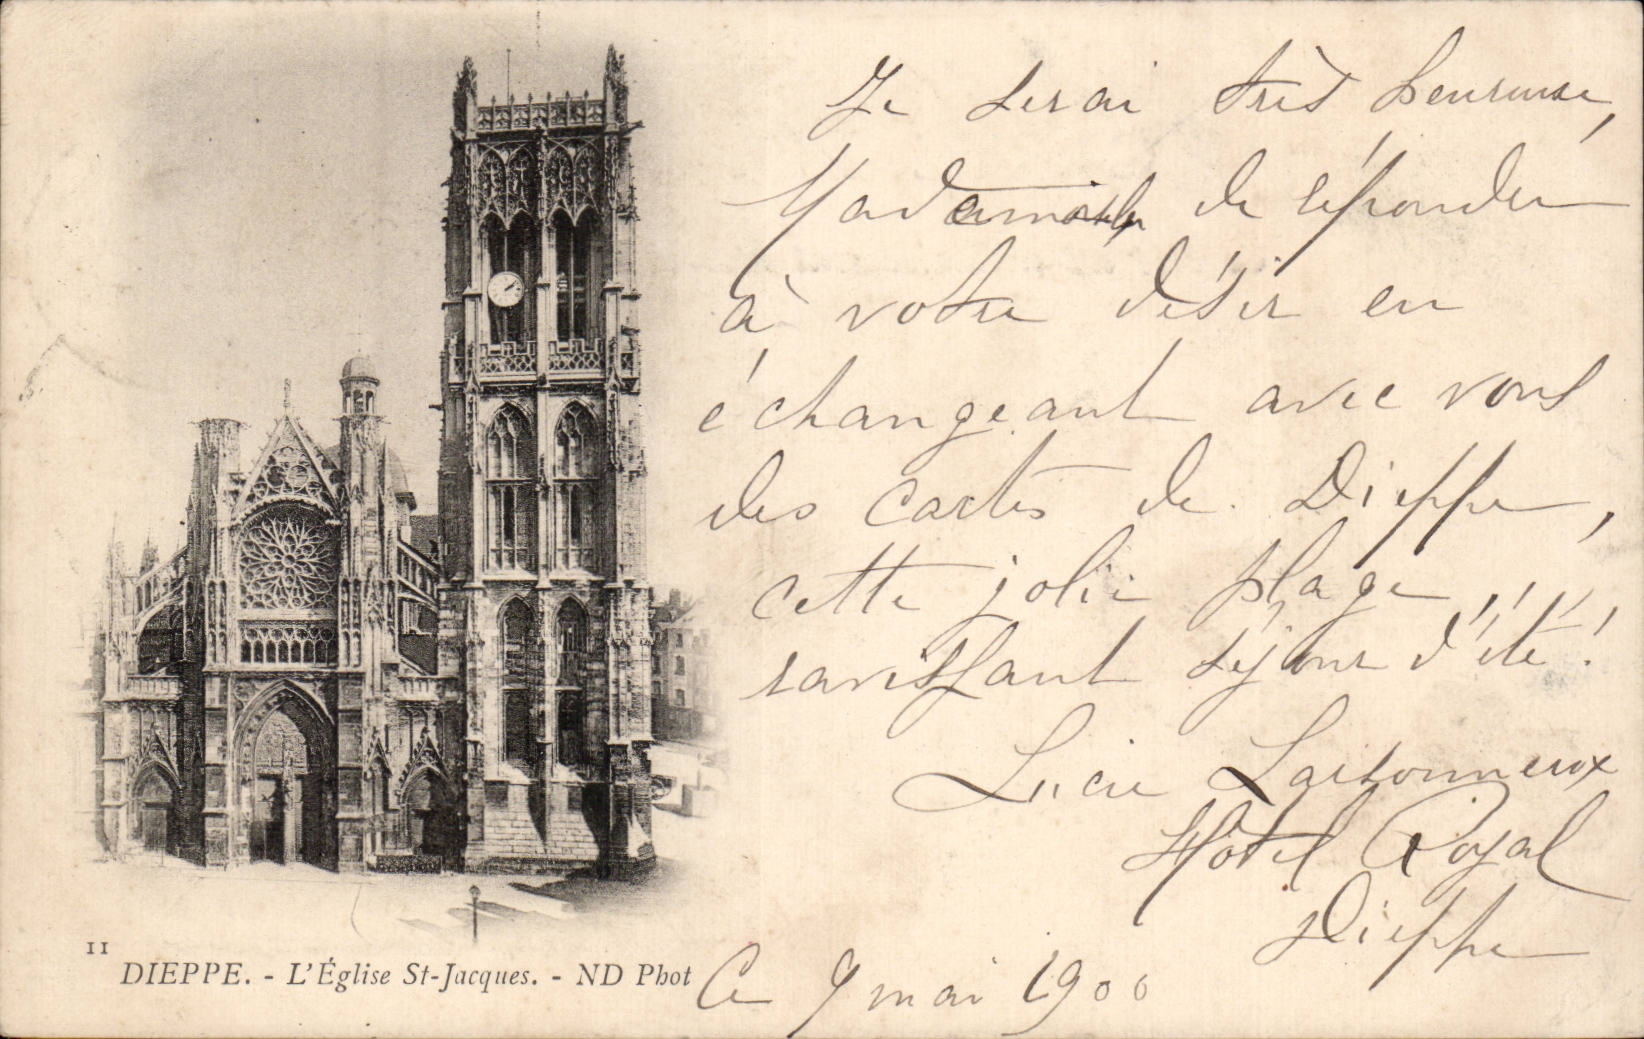 Je serai très heureuse,
Mademoiselle de répondre
à votre désir en
échangeant avec vous
des cartes de Dieppe,
cette jolie plage,
ravissant séjour d'été!
Lucie
Hôtel Royal
Dieppe
Ce 9 mai 1900
11
DIEPPE. - L'Église St-Jacques. - ND Phot